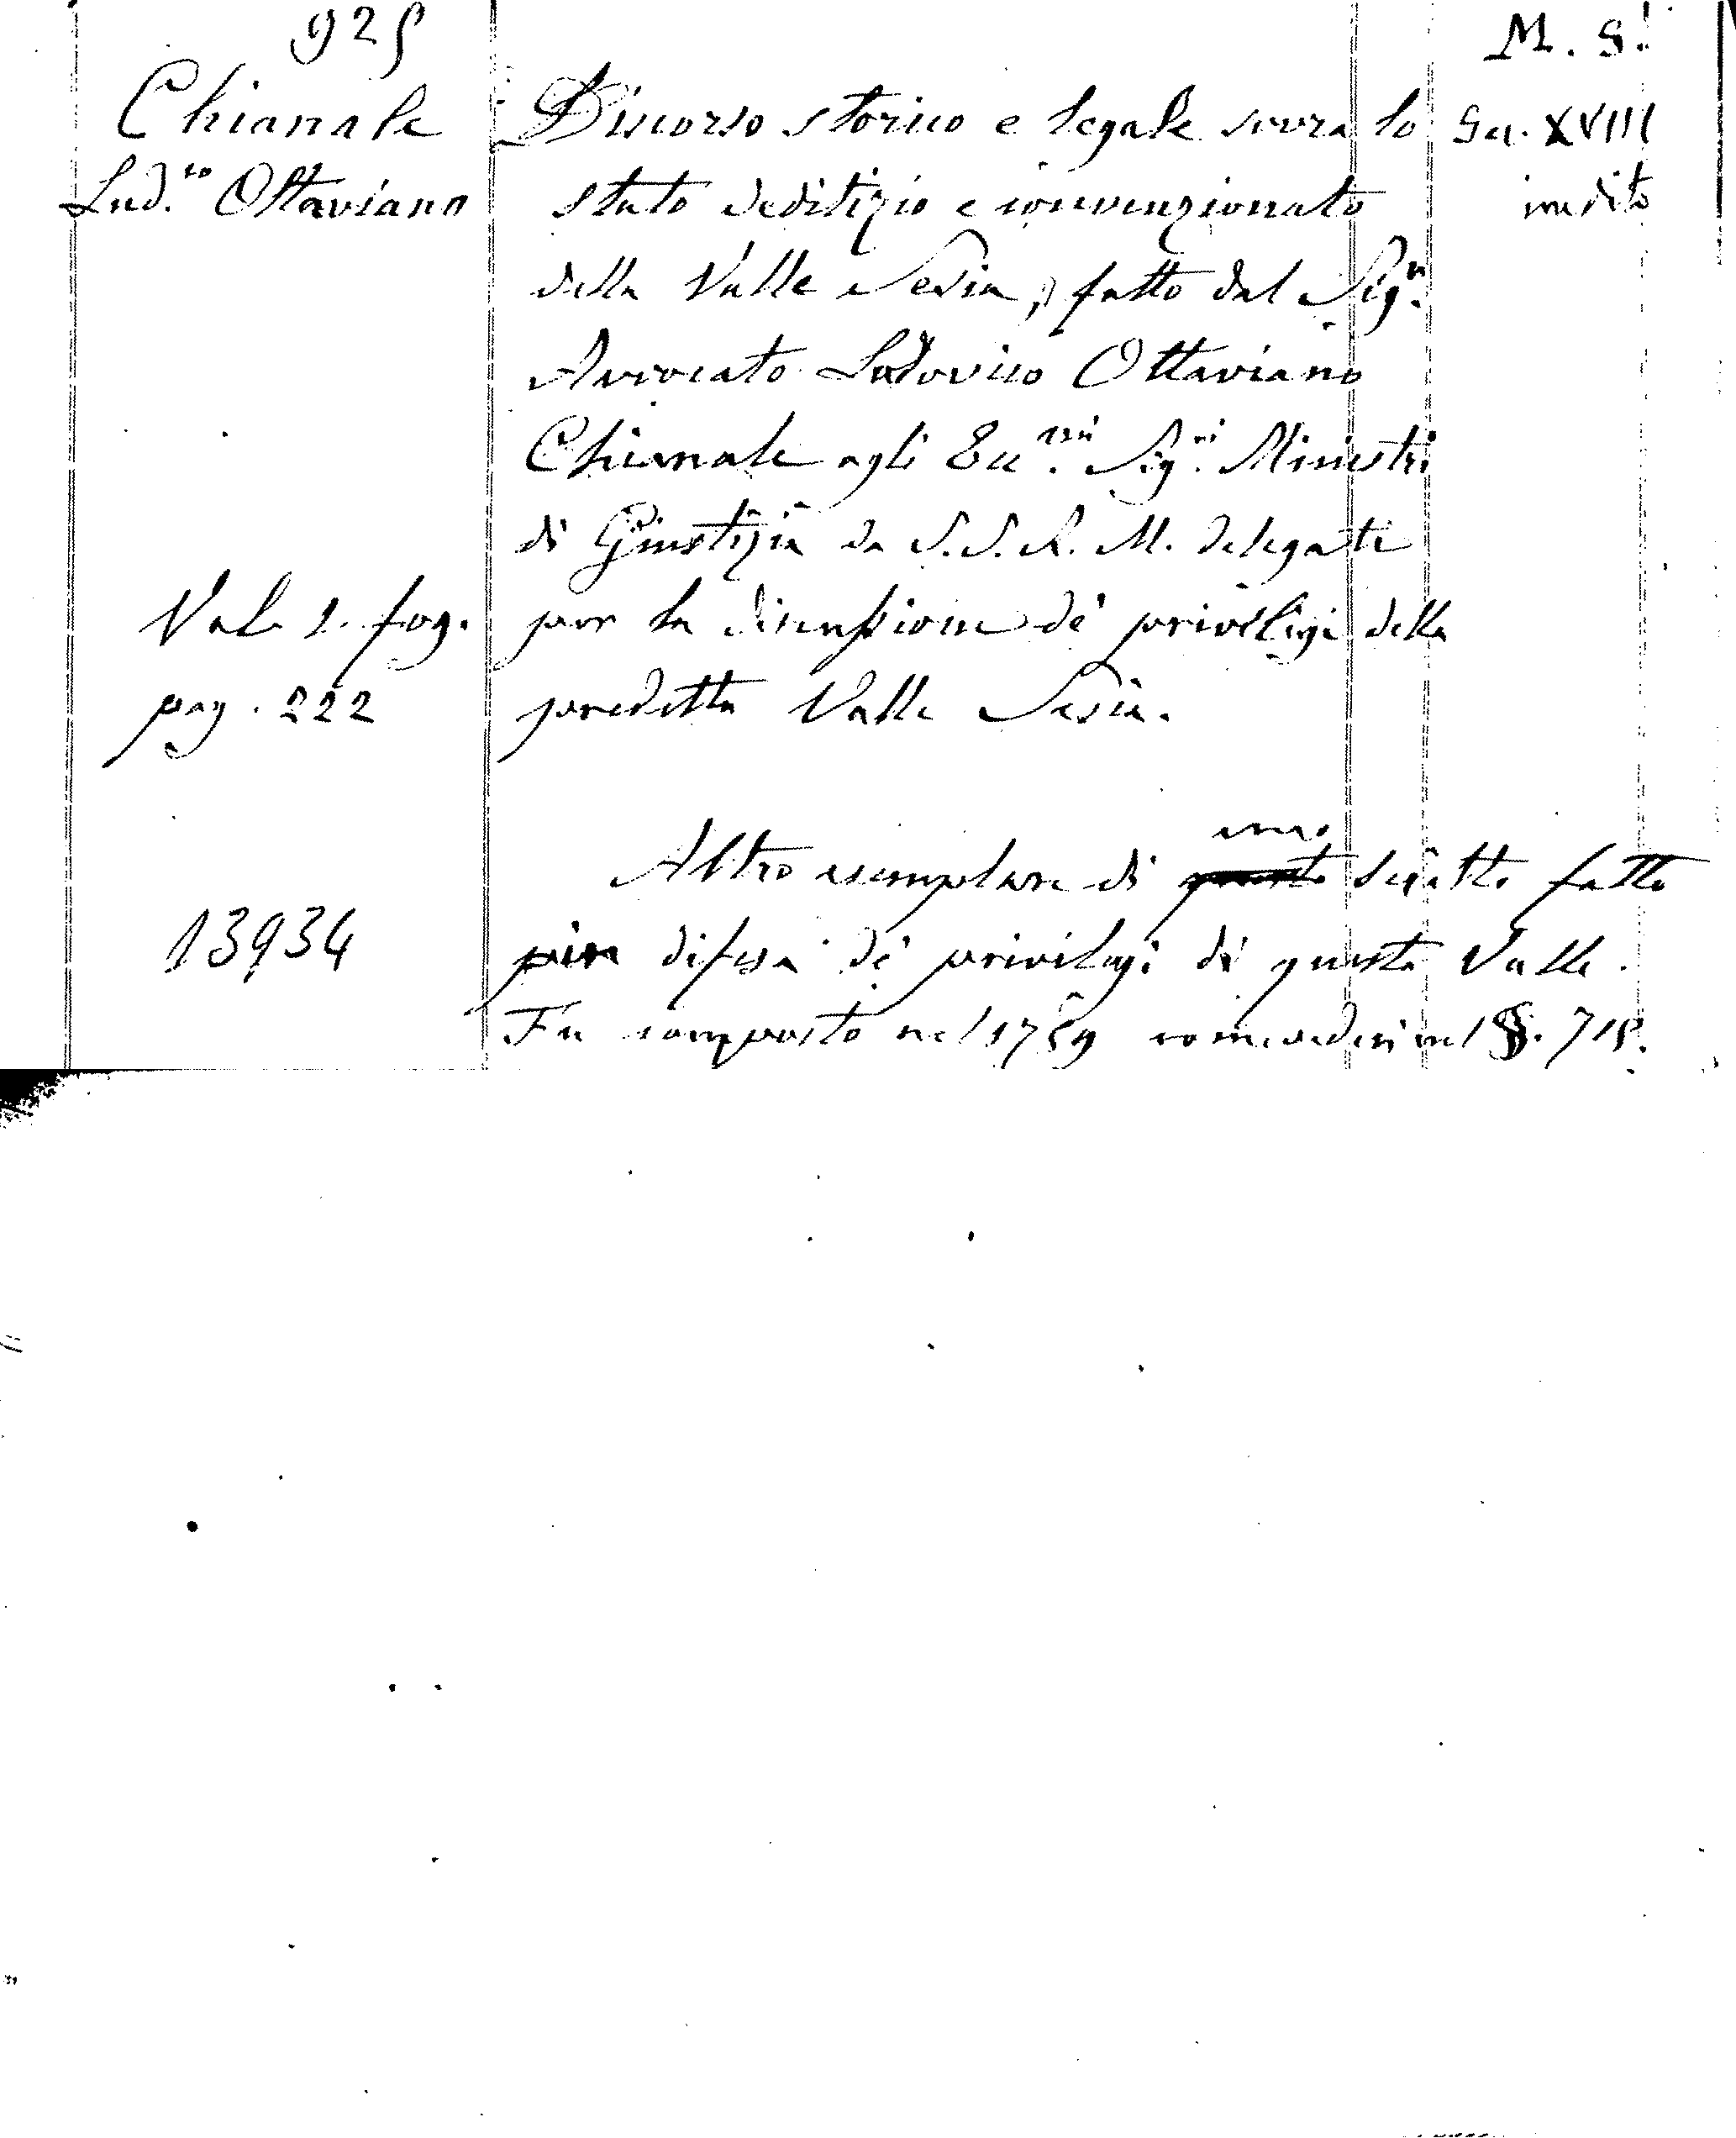 925
M. S.
Chianale
Lud.co Ottaviano
Discorso storico e legale sovra lo
stato deditizio e convenzionato
della Valle Sesia, fatto dal Sig.r
Avvocato Lodovico Ottaviano
Chianale agli Ecc.mi Sig.ri Ministri
di Giustizia da S. S. R. M. delegati
per la discussione de' privilegi della
predetta Valle Sesia.
Sec. XVIII
inedito
Vol. 1. fog.
pag. 222
13934
uno
Altro esemplare di scritto fatto
per difesa de' privilegi di questa Valle.
Fu composto nel 1759 come vedesi nel §. 715.